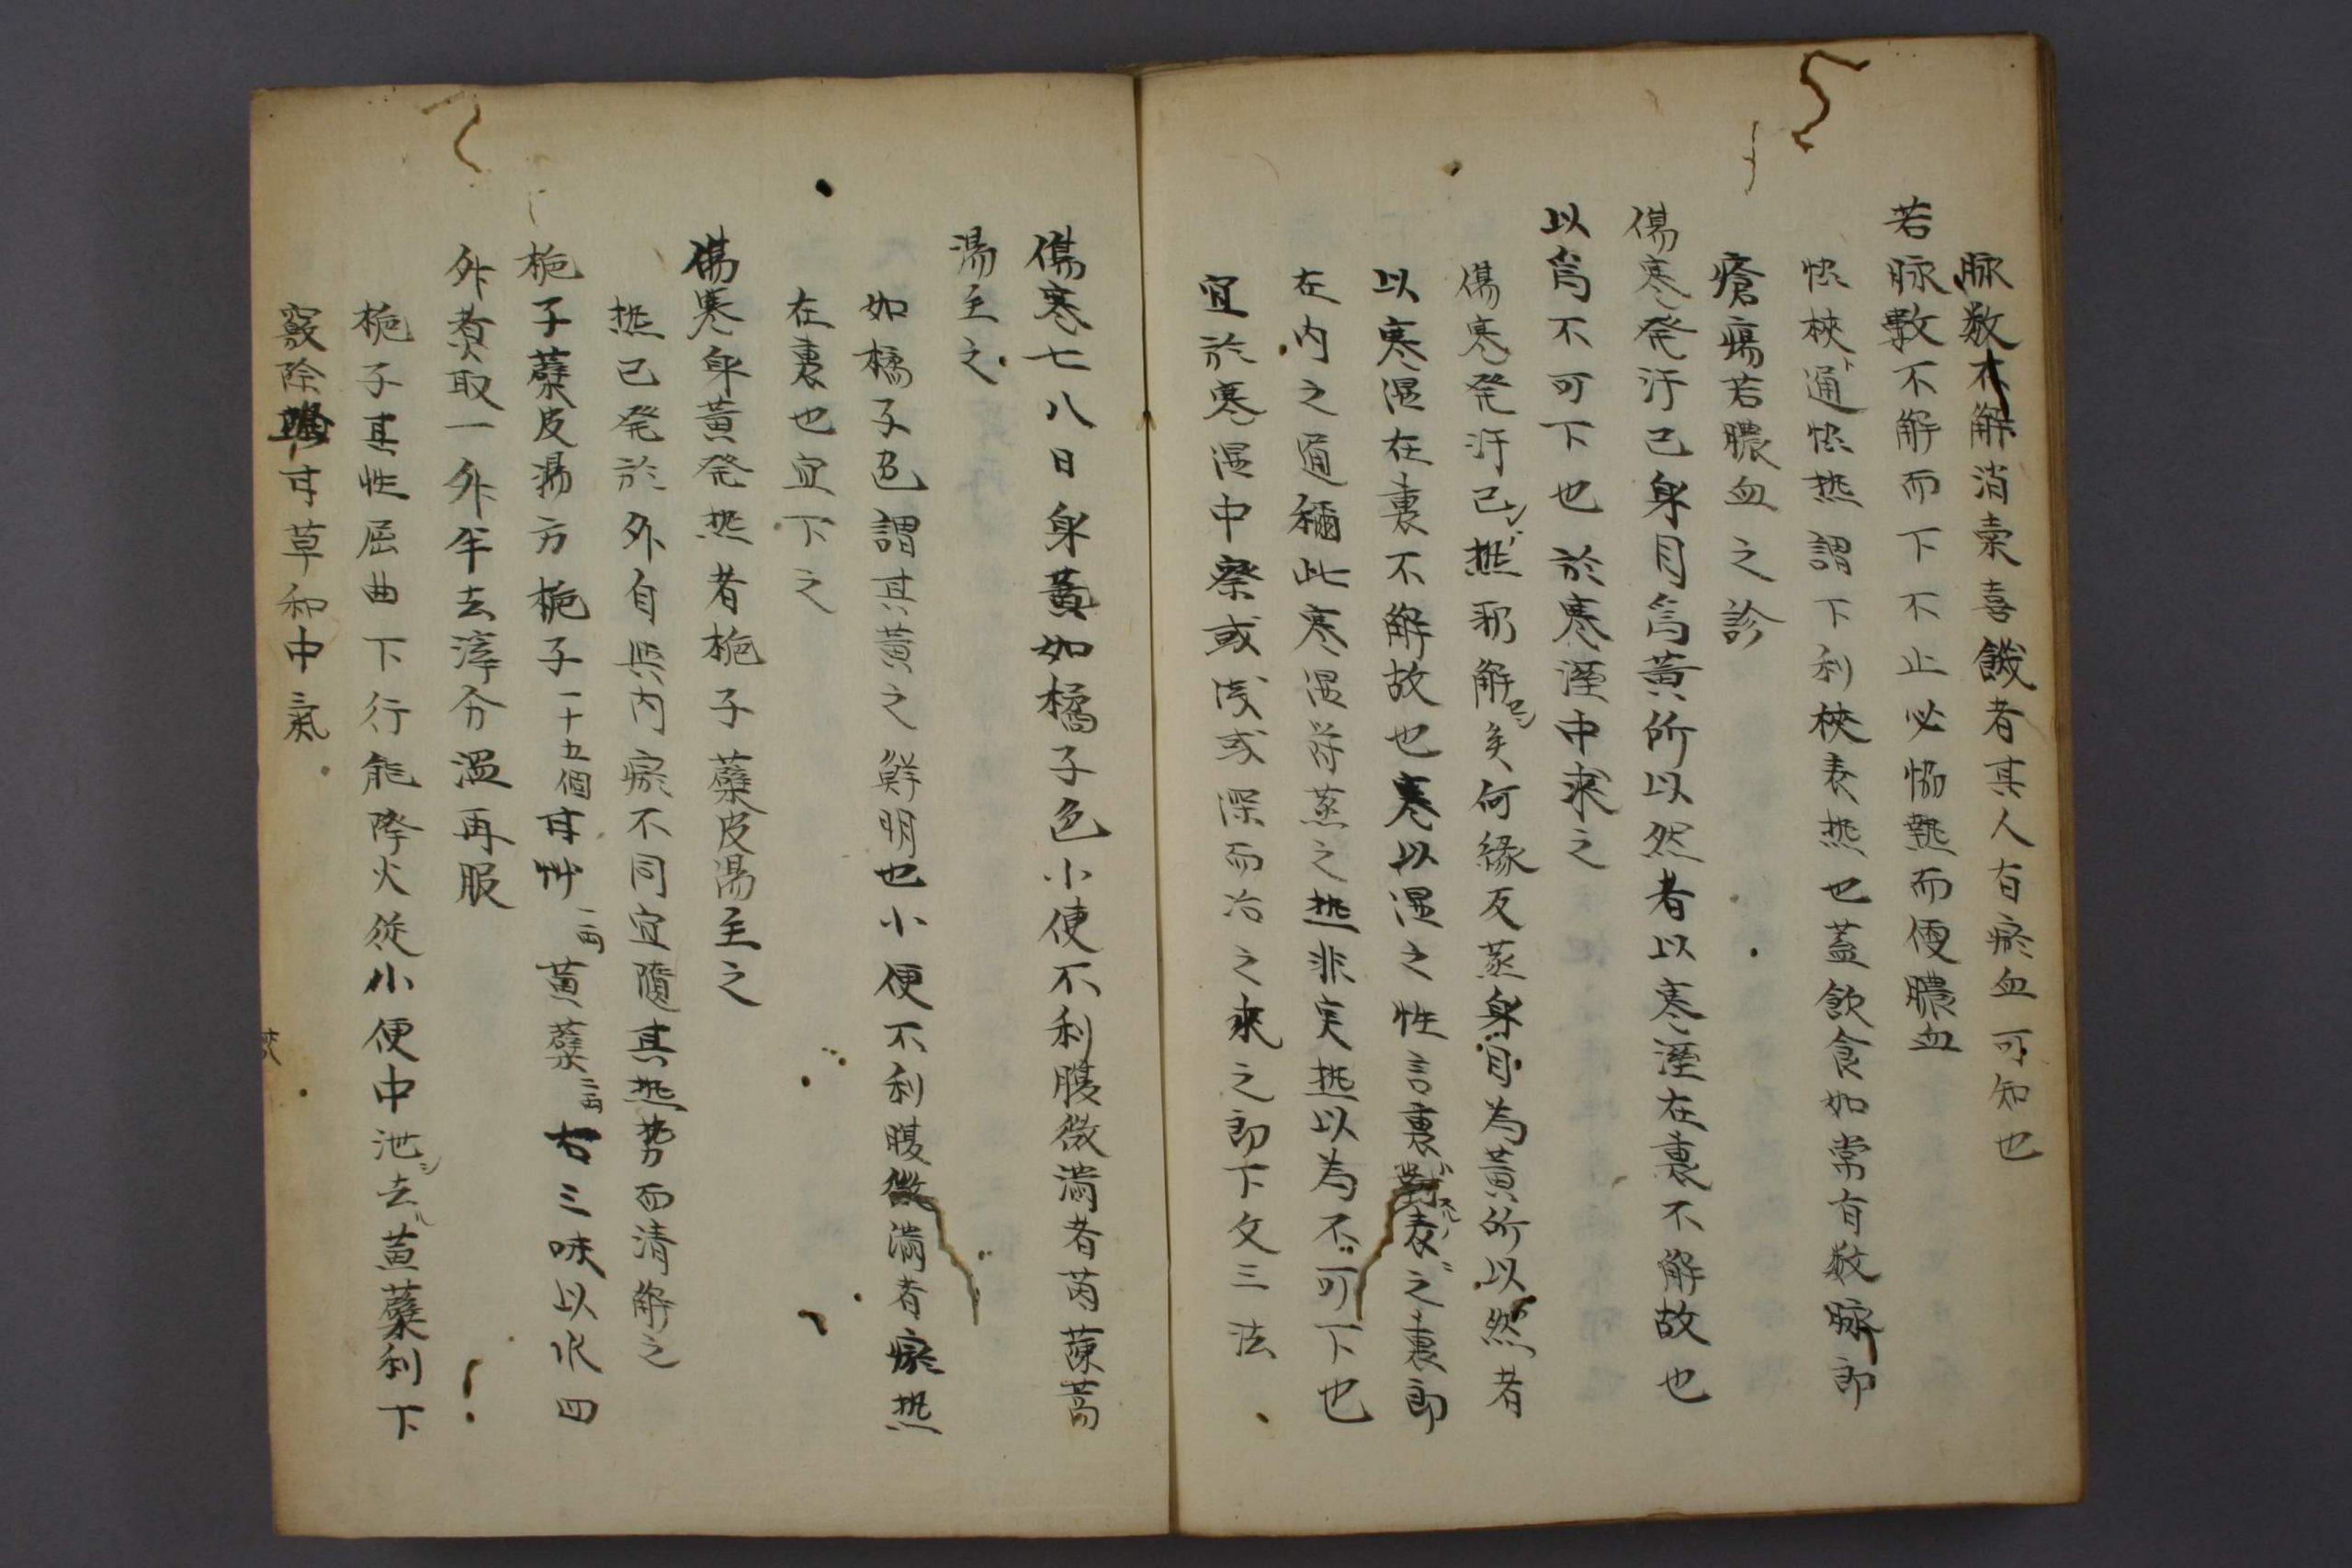 脉数不解消索喜饑者其人有瘀血可知也
若脉數不解而下不止必恊熱而便膿血
恊挾通恊热謂下利挾表热也蓋飲食如常有数脉即
瘡瘍若膿血之診
傷寒発汗已身目爲黄所以然者以寒溼在裏不解故也
以爲不可下也於寒溼中求之
傷寒発汗已热邪解矣何縁反蒸身目為黄所以然者
以寒湿在裏不解故也寒以湿之性言裏對表之裏即
在内之通稱此寒湿欝蒸之热非実热以為不可下也
宜於寒湿中察或浅或深而治之求之即下文三法
傷寒七八日身黄如橘子色小便不利腹微滿者茵蔯蒿
湯主之
如橘子色謂其黄之鮮明也小便不利腹微滿者瘀热
在裏也宜下之
傷寒身黄発热者梔子蘗皮湯主之
热已発於外自與内瘀不同宜隨其热势而清解之
梔子蘗皮湯方梔子一十五個甘艸一両黄蘗二両右三味以水四
升煑取一升半去滓分温再服
梔子其性屈曲下行能降火従小便中泄去黄蘗利下
竅除甘草和中氣